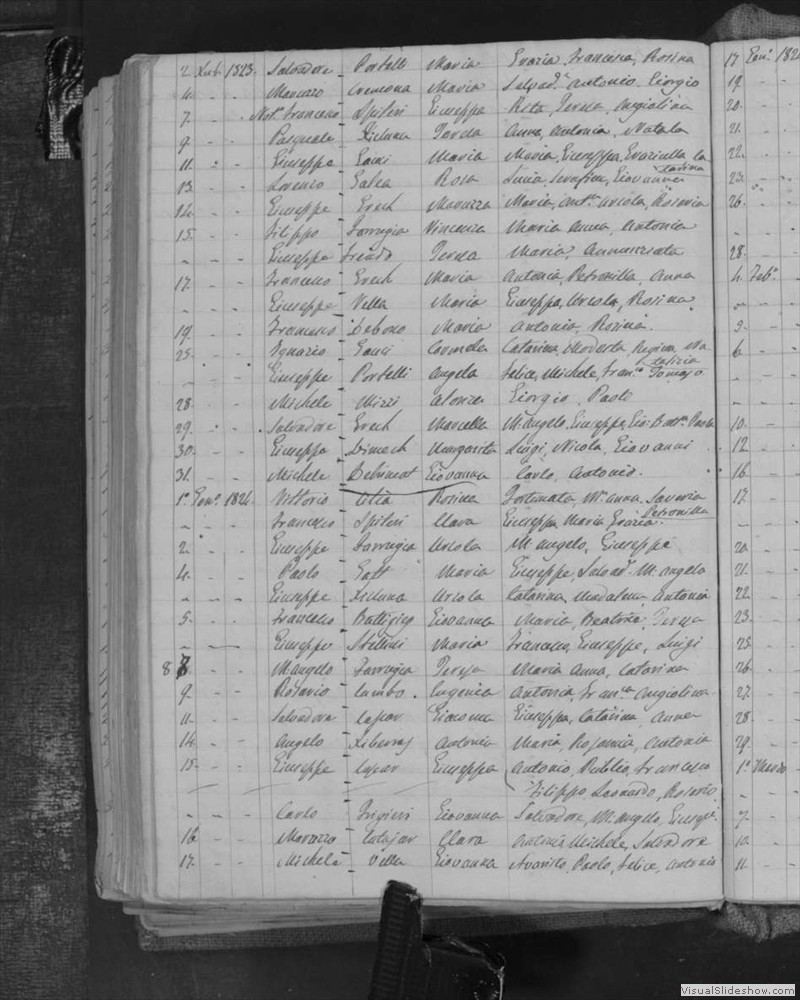 2 Xbr. 1823. Salvadore Portelli Maria Grazia, Francesca, Rosina
4 - - Maruzzo Cremona Maria Salvad.e Antonio, Giorgio
7 - - Not.r Francesco Spiteri Giuseppa Rita, Teresa, Angiolina
9 - - Pasquale Xicluna Teresa Anna, Antonia, Natala
11 - - Giuseppe Gauci Maria Maria, Giuseppa, Graziella
13 - - Lorenzo Galea Rosa Lucia, Serafina, Giovanna
14 - - Giuseppe Grech Maruzza Maria, Ant.a Ursola, Rosaria
15 - - Filippo Farrugia Vincenza Maria Anna, Antonia
- - - Giuseppe Teresa Maria, Annunziata
17 - - Francesco Grech Maria Antonia, Petronilla, Anna
- - - Giuseppe Vella Maria Giuseppa, Ursola, Rosina
19 - - Francesco Debono Maria Antonia, Rosina.
25 - - Ignazio Gauci Catarina, Modesta, Regina
- - - Giuseppe Portelli Angela Felice, Michele, Fran.co Tomaso
28 - - Michele Mizzi Giorgio, Paolo
29 - - Salvadore Grech Marcella M. Angelo, Giuseppe, Gio: Batt.a Paolo
30 - - Giuseppe Dimech Margarita Luigi, Nicola, Giovanni
31 - - Michele Giovanna Carlo, Antonio.
1.o Gen.o 1824. Vittorio Rosina Fortunata, M.a Anna, Saveria
Petronilla
- - - Francesco Spiteri Clara Giuseppa, Maria, Grazia.
2 - - Giuseppe Farrugia Ursola M. Angelo, Giuseppe
4 - - Paolo Gatt Maria Giuseppe, Salvad.e M. Angelo
- - - Giuseppe Xicluna Ursola Catarina, Madalena Antonia
5 - - Francesco Buttigieg Giovanna Maria, Beatrice, Teresa
- - Giuseppe Stellini Maria Francesco, Giuseppe, Luigi
8 - - M. Angelo Farrugia Teresa Maria Anna, Catarina
9 - - Rosario Cumbo Eugenia Antonia, Fran.ca Angiolina
11 - - Salvadore Caspar Giacoma Giuseppa, Catarina, Anna
14 - - Angelo Xiberras Antonia Maria, Rosannia, Antonia
15 - - Giuseppe Caspar Giuseppa Antonio, Publio, Francesco
Filippo, Leonardo, Rosario
- - - Carlo Frigieri Giovanna Salvadore, M. Angelo, Giuseppe
16 - - Maruzzo Cutajar Clara Antonio, Michele, Salvadore
17 - - Michele Vella Giovanna Paolo, Felice, Antonio
17 Gen.o 1824
19
20
21
22
23
26
28
4 Feb.o
5
6
10
12
16
17
20
21
22
23
25
26
27
28
29
1.o Marzo
7
10
11
VisualSlideshow.com